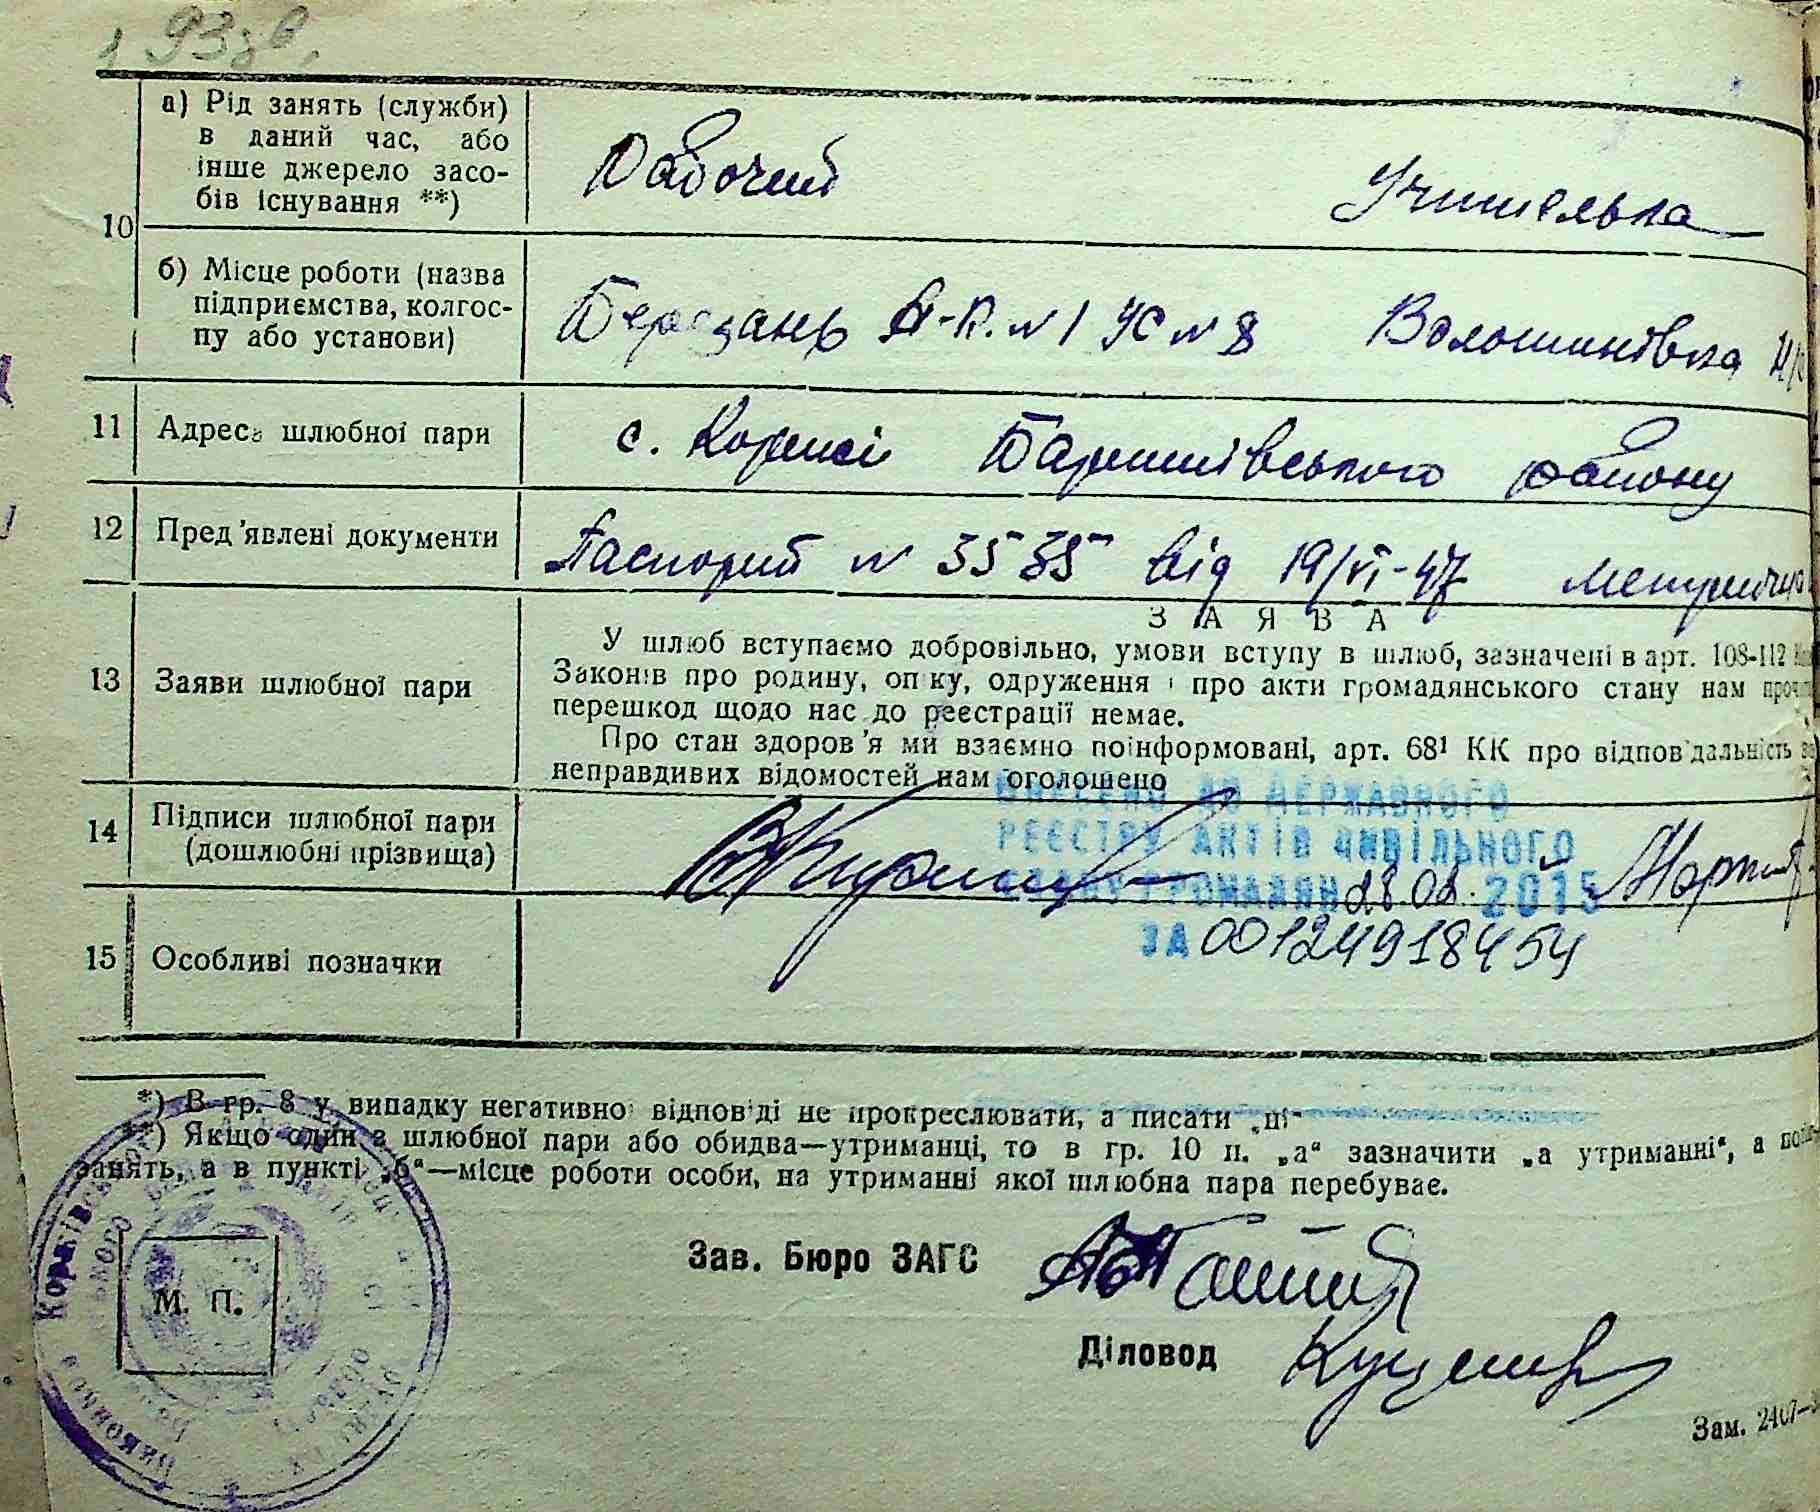 а) Рід занять (служби)
в даний час, або
інше джерело засо-
бів існування **)
Рабочий
Учителька
10
б) Місце роботи (назва
підприємства, колгос-
пу або установи)
Березань № 1 УС № 8
Волошинівка
11
Адреса шлюбної пари
с. Коржі Баришівського району
12
Пред'явлені документи
Паспорт № 3535 від 19/VI-47 метрична
ЗАЯВА
13
Заяви шлюбної пари
У шлюб вступаємо добровільно, умови вступу в шлюб, зазначені в арт. 108-112
Законів про родину, опіку, одруження і про акти громадянського стану нам
перешкод щодо нас до реєстрації немає.
Про стан здоров'я ми взаємно поінформовані, арт. 68¹ КК про відповідальність
неправдивих відомостей нам оголошено
14
Підписи шлюбної пари
(дошлюбні прізвища)
ВНЕСЕНО ДО ДЕРЖАВНОГО
РЕЄСТРУ АКТІВ ЦИВІЛЬНОГО
СТАНУ ГРОМАДЯН 28.08. 2015
ЗА 00124918454
15
Особливі позначки
*) В гр. 8 у випадку негативної відповіді не прокреслювати, а писати „ні"
**) Якщо один з шлюбної пари або обидва—утриманці, то в гр. 10 п. „а" зазначити „а утриманні", а
занять, а в пункті „б"—місце роботи особи, на утриманні якої шлюбна пара перебуває.
Зав. Бюро ЗАГС
М. П.
Діловод
Зам. 2407—